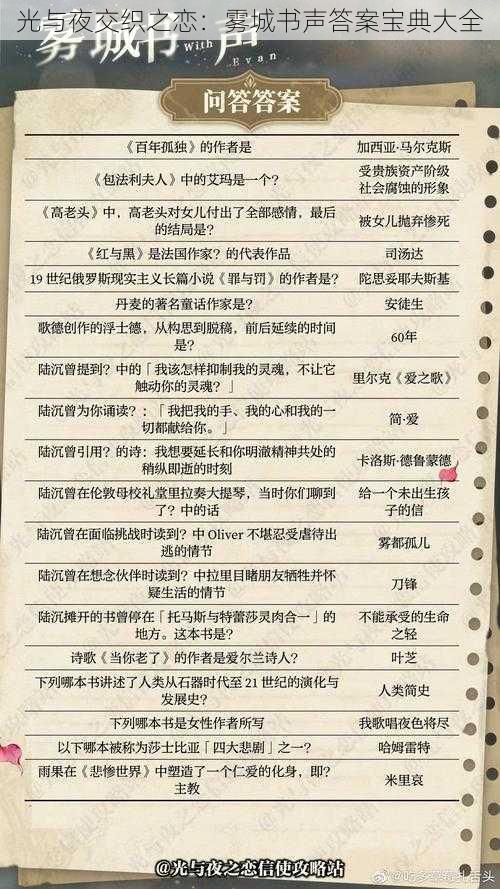 光与夜交织之恋：雾城书声答案宝典大全
雾城书声
With
Evan
问答答案
《百年孤独》的作者是 加西亚·马尔克斯
《包法利夫人》中的艾玛是一个？ 受贵族资产阶级
社会腐蚀的形象
《高老头》中，高老头对女儿付出了全部感情，最后
的结局是？ 被女儿抛弃惨死
《红与黑》是法国作家？的代表作品 司汤达
19世纪俄罗斯现实主义长篇小说《罪与罚》的作者是？ 陀思妥耶夫斯基
丹麦的著名童话作家是？ 安徒生
歌德创作的浮士德，从构思到脱稿，前后延续的时间
是？ 60年
陆沉曾提到？中的「我该怎样抑制我的灵魂，不让它
触动你的灵魂？」 里尔克《爱之歌》
陆沉曾为你诵读？：「我把我的手、我的心和我的一
切都献给你。」 简·爱
陆沉曾引用？的诗：我想要延长和你明澈精神共处的
稍纵即逝的时刻 卡洛斯·德鲁蒙德
陆沉曾在伦敦母校礼堂里拉奏大提琴，当时你们聊到
了？中的话 给一个未出生孩
子的信
陆沉曾在面临挑战时读到？中 Oliver 不堪忍受虐待出
逃的情节 雾都孤儿
陆沉曾在想念伙伴时读到？中拉里目睹朋友牺牲并怀
疑生活的情节 刀锋
陆沉摊开的书曾停在「托马斯与特蕾莎灵肉合一」的
地方。这本书是？ 不能承受的生命
之轻
诗歌《当你老了》的作者是爱尔兰诗人？ 叶芝
下列哪本书讲述了人类从石器时代至21世纪的演化与
发展史？ 人类简史
下列哪本书是女性作者所写 我歌唱夜色将尽
以下哪本被称为莎士比亚「四大悲剧」之一？ 哈姆雷特
雨果在《悲惨世界》中塑造了一个仁爱的化身，即？
主教 米里哀
@光与夜之恋信使攻略站